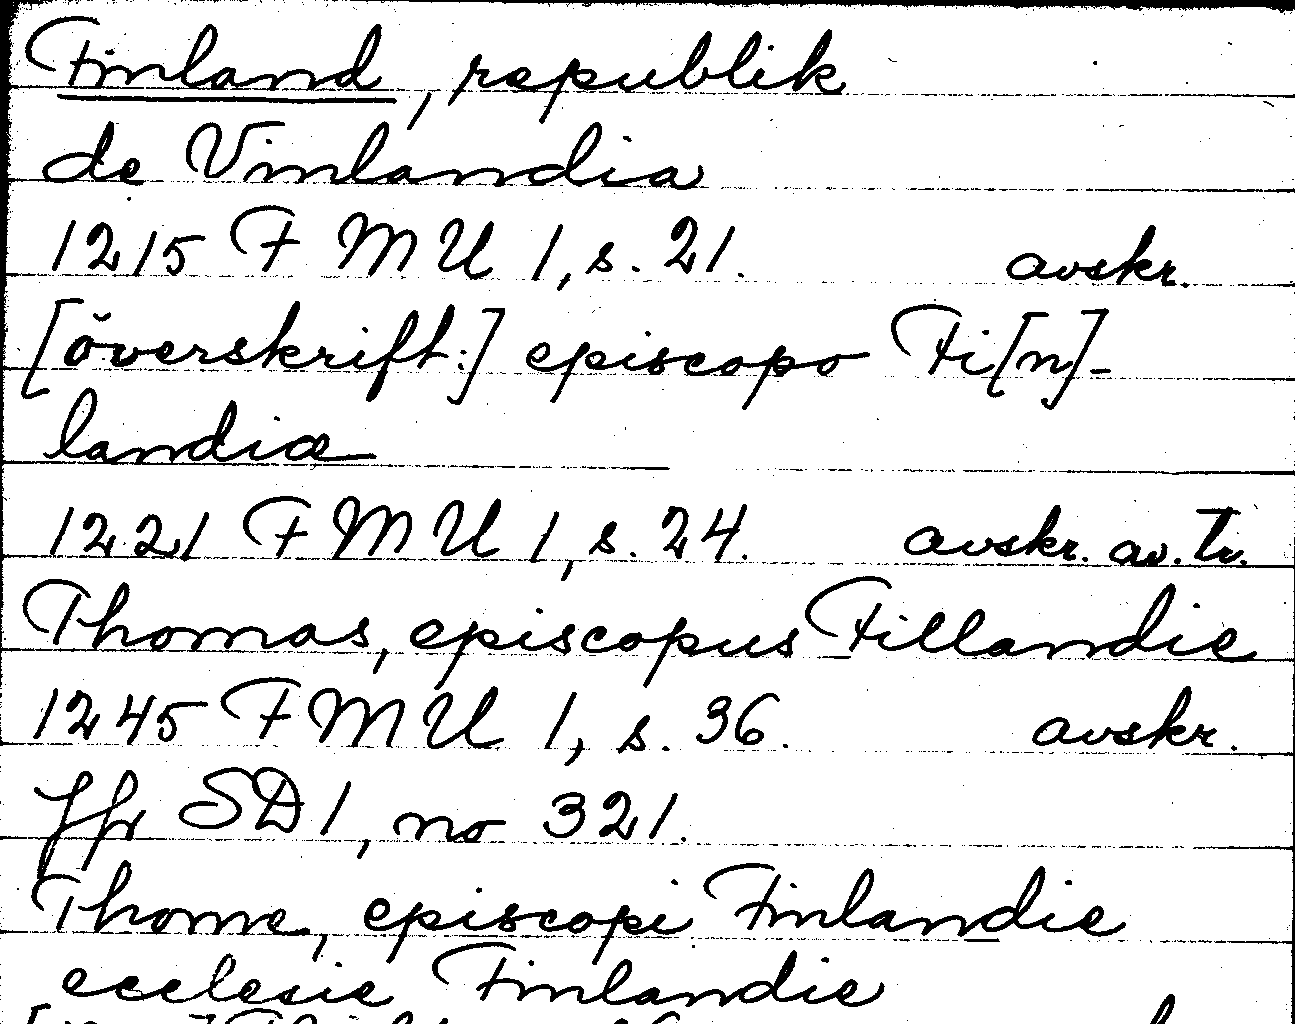 Finland, republik
de Vinlandia
1215 FMU 1, s. 21. avskr.
[överskrift:] episcopo Fi[n]-
landiæ
1221 FMU 1, s. 24. avskr. av. Tr.
Thomas, episcopus Fillandie
1245 FMU 1, s. 36. avskr.
Jfr SD 1, no 321.
Thome, episcopi Finlandie
ecclesie Finlandie